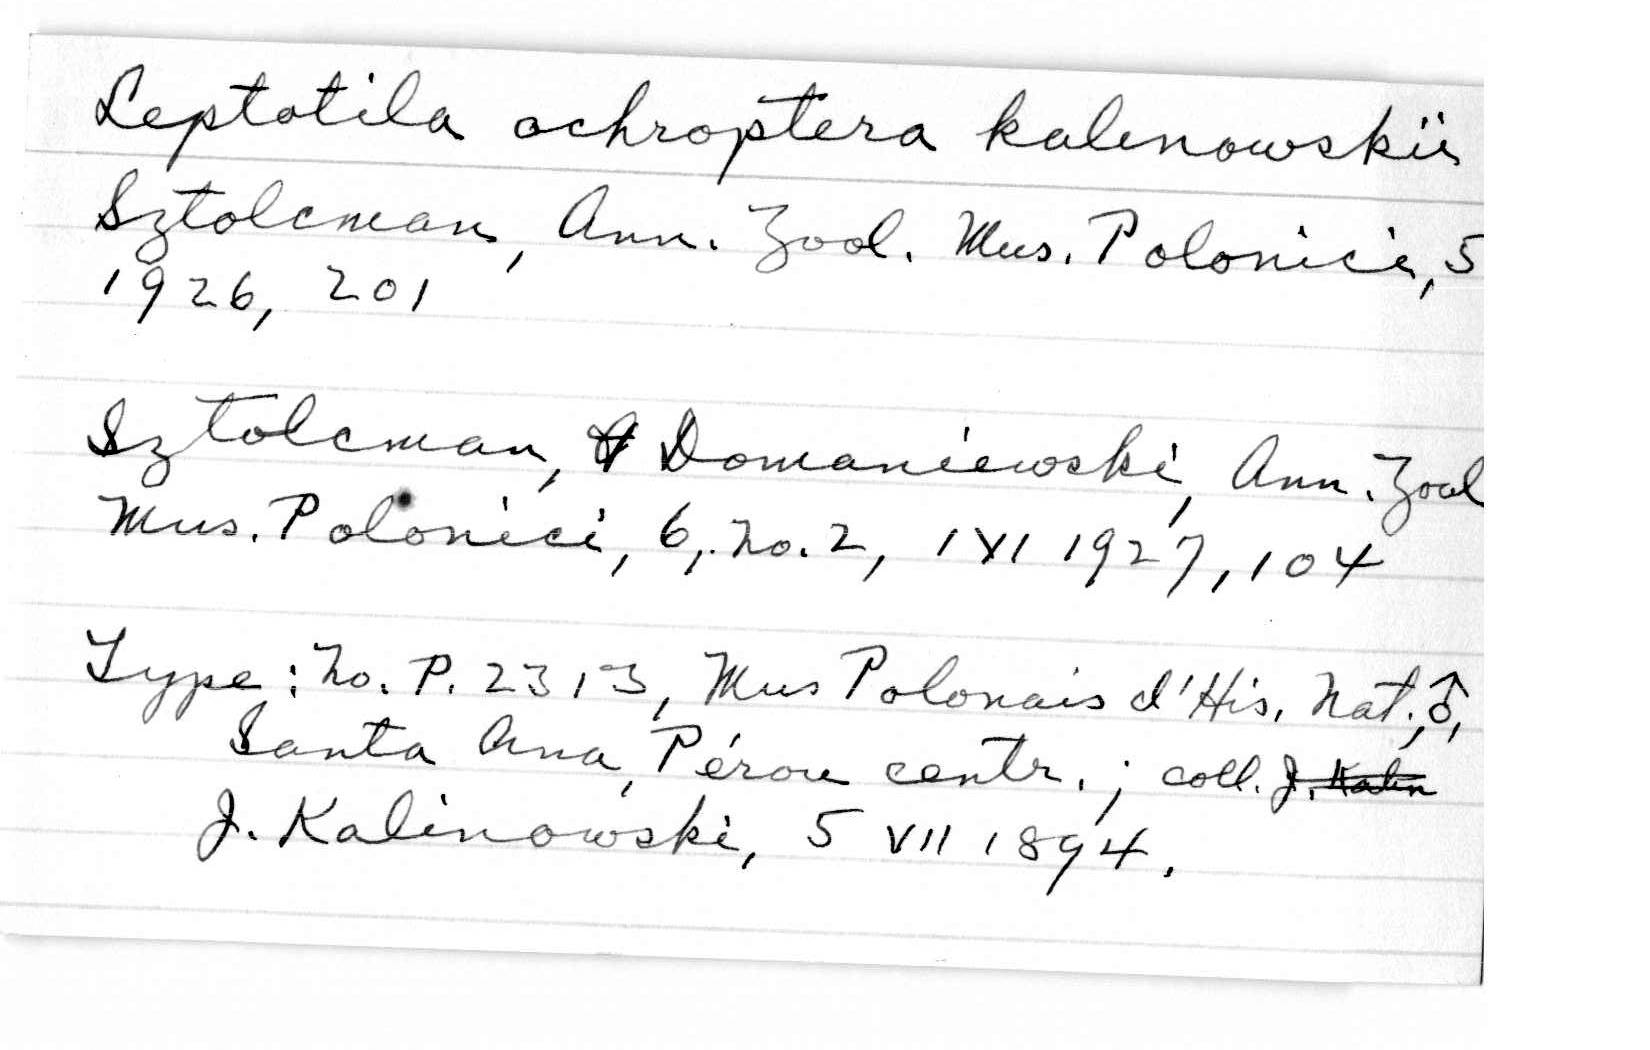 Leptotila ochroptera kalinowskii
Sztolcman, Ann. Zool. Mus. Polonici, 5
1926, 201
Sztolcman, & Domaniewski, Ann. Zool
Mus. Polonici, 6, no. 2, 1 XI 1927, 104
Type: No. P. 2313, Mus Polonais d'His. Nat., ♂,
Santa Ana, Pérou centr.; coll. J. Kalin
J. Kalinowski, 5 VII 1894.